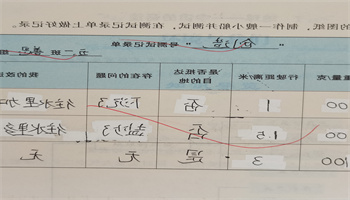 的图纸，制作一艘小船并测试，在测试记录单上做好记录
“创造”号测试记录单 五二班
重量/克 行驶距离/米 是否抵达目的地 存在的问题 我的改
00 1 否 下沉了 往水里加
00 1.5 否 往水里多
100 3 是 无 无